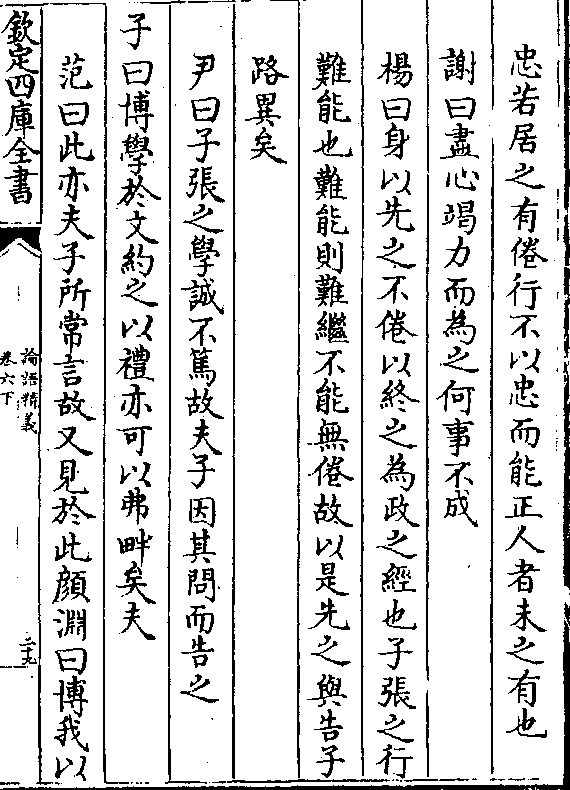 忠若居之有倦行不以忠而能正人者未之有也
謝曰盡心竭力而為之何事不成
楊曰身以先之不倦以終之為政之經也子張之行
難能也難能則難繼不能無倦故以是先之與告子
路異矣
尹曰子張之學誠不篤故夫子因其問而告之
子曰博學於文約之以禮亦可以弗畔矣夫
范曰此亦夫子所常言故又見於此顔淵曰博我以
欽定四庫全書
論語精義
卷六下
二十九